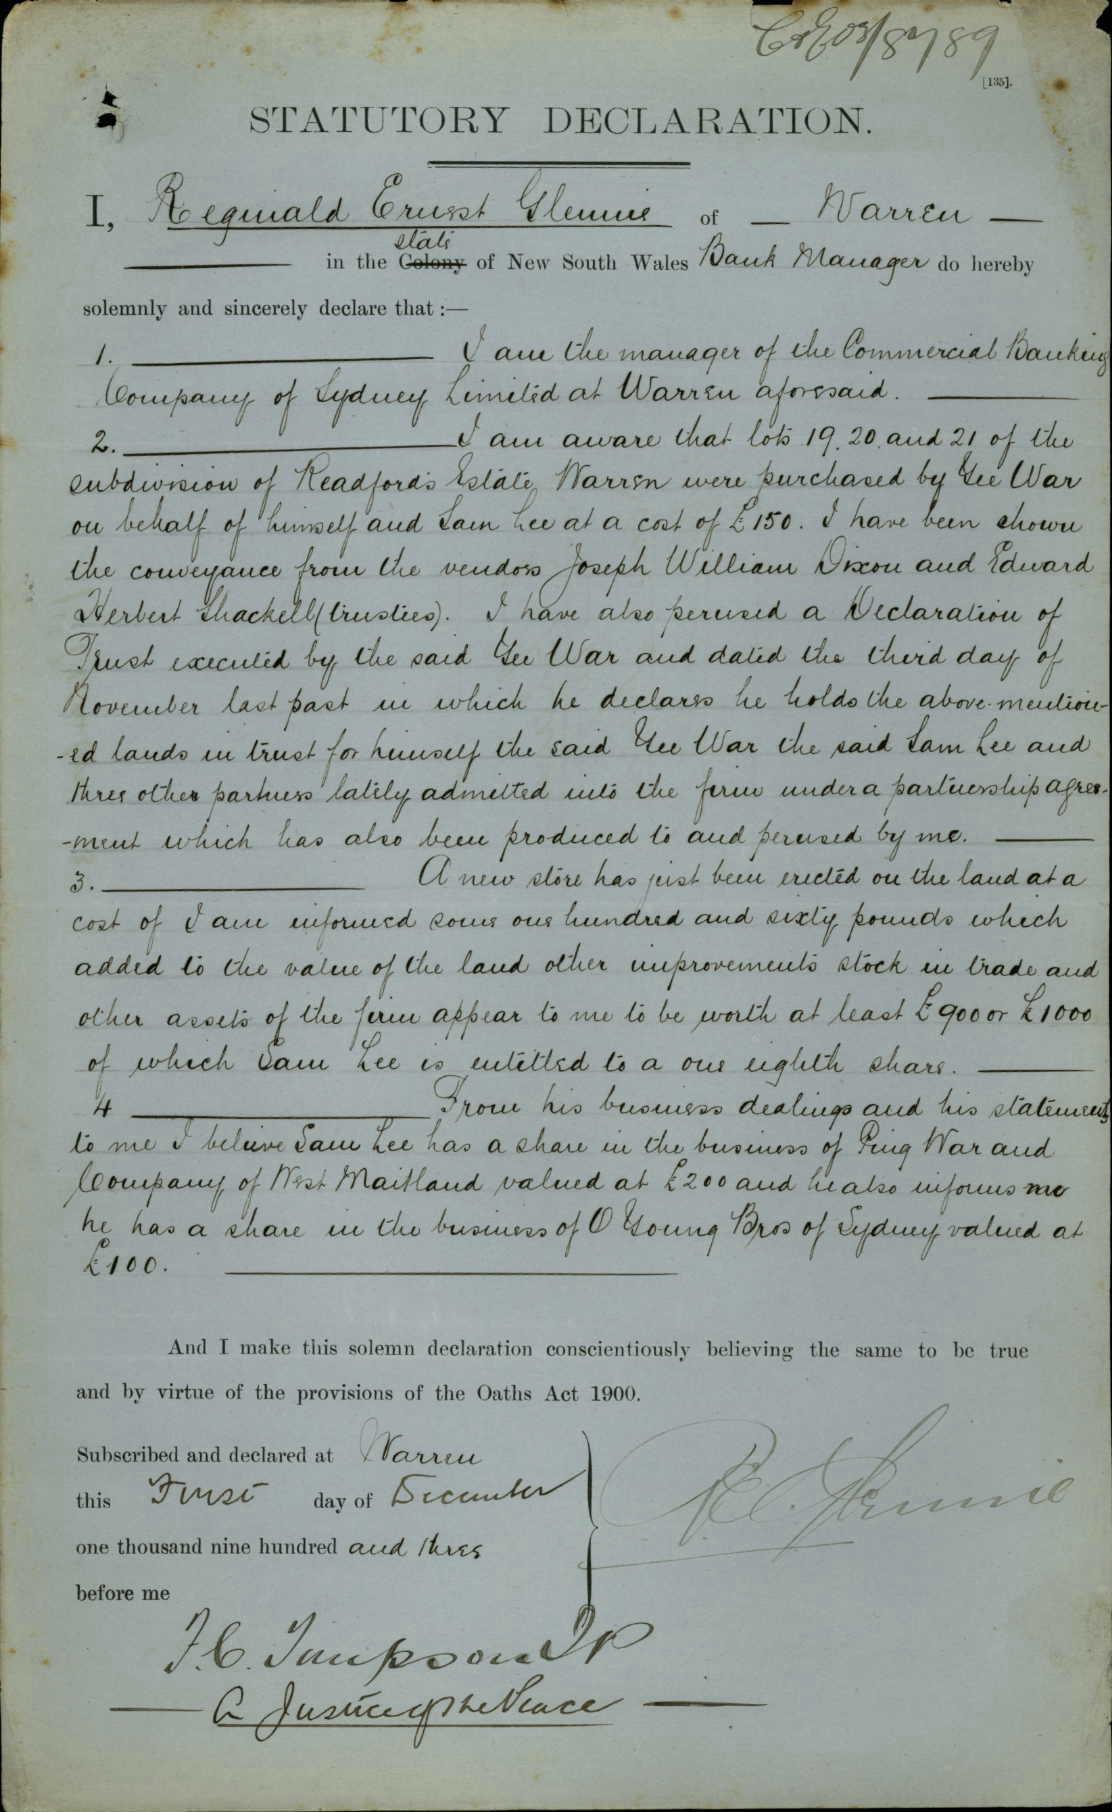 C&E 03/8789
[135].
STATUTORY DECLARATION.
I, Reginald Ernest Glennie of — Warren —
state
in the Colony of New South Wales Bank Manager do hereby
solemnly and sincerely declare that :—
1. I am the manager of the Commercial Banking
Company of Sydney Limited at Warren aforesaid.
2. I am aware that lots 19. 20 and 21 of the
subdivision of Readford's Estate Warren were purchased by Yee War
on behalf of himself and Sam Lee at a cost of £150. I have been shown
the conveyance from the vendors Joseph William Dixon and Edward
Herbert Shackell (trustees). I have also perused a Declaration of
Trust executed by the said Yee War and dated the third day of
November last past in which he declares he holds the above-mention-
-ed lands in trust for himself the said Yee War the said Sam Lee and
three other partners lately admitted into the firm under a partnership agree-
-ment which has also been produced to and perused by me.
3. A new store has just been erected on the land at a
cost of I am informed some one hundred and sixty pounds which
added to the value of the land other improvements stock in trade and
other assets of the firm appear to me to be worth at least £900 or £1000
of which Sam Lee is entitled to a one eighth share.
4 From his business dealings and his statements
to me I believe Sam Lee has a share in the business of Ping War and
Company of West Maitland valued at £200 and he also informs me
he has a share in the business of O Young Bros of Sydney valued at
£100.
And I make this solemn declaration conscientiously believing the same to be true
and by virtue of the provisions of the Oaths Act 1900.
Subscribed and declared at Warren
this First day of December
one thousand nine hundred and three
before me
R E. Glennie
F. C. Timpson JP
A Justice of the Peace